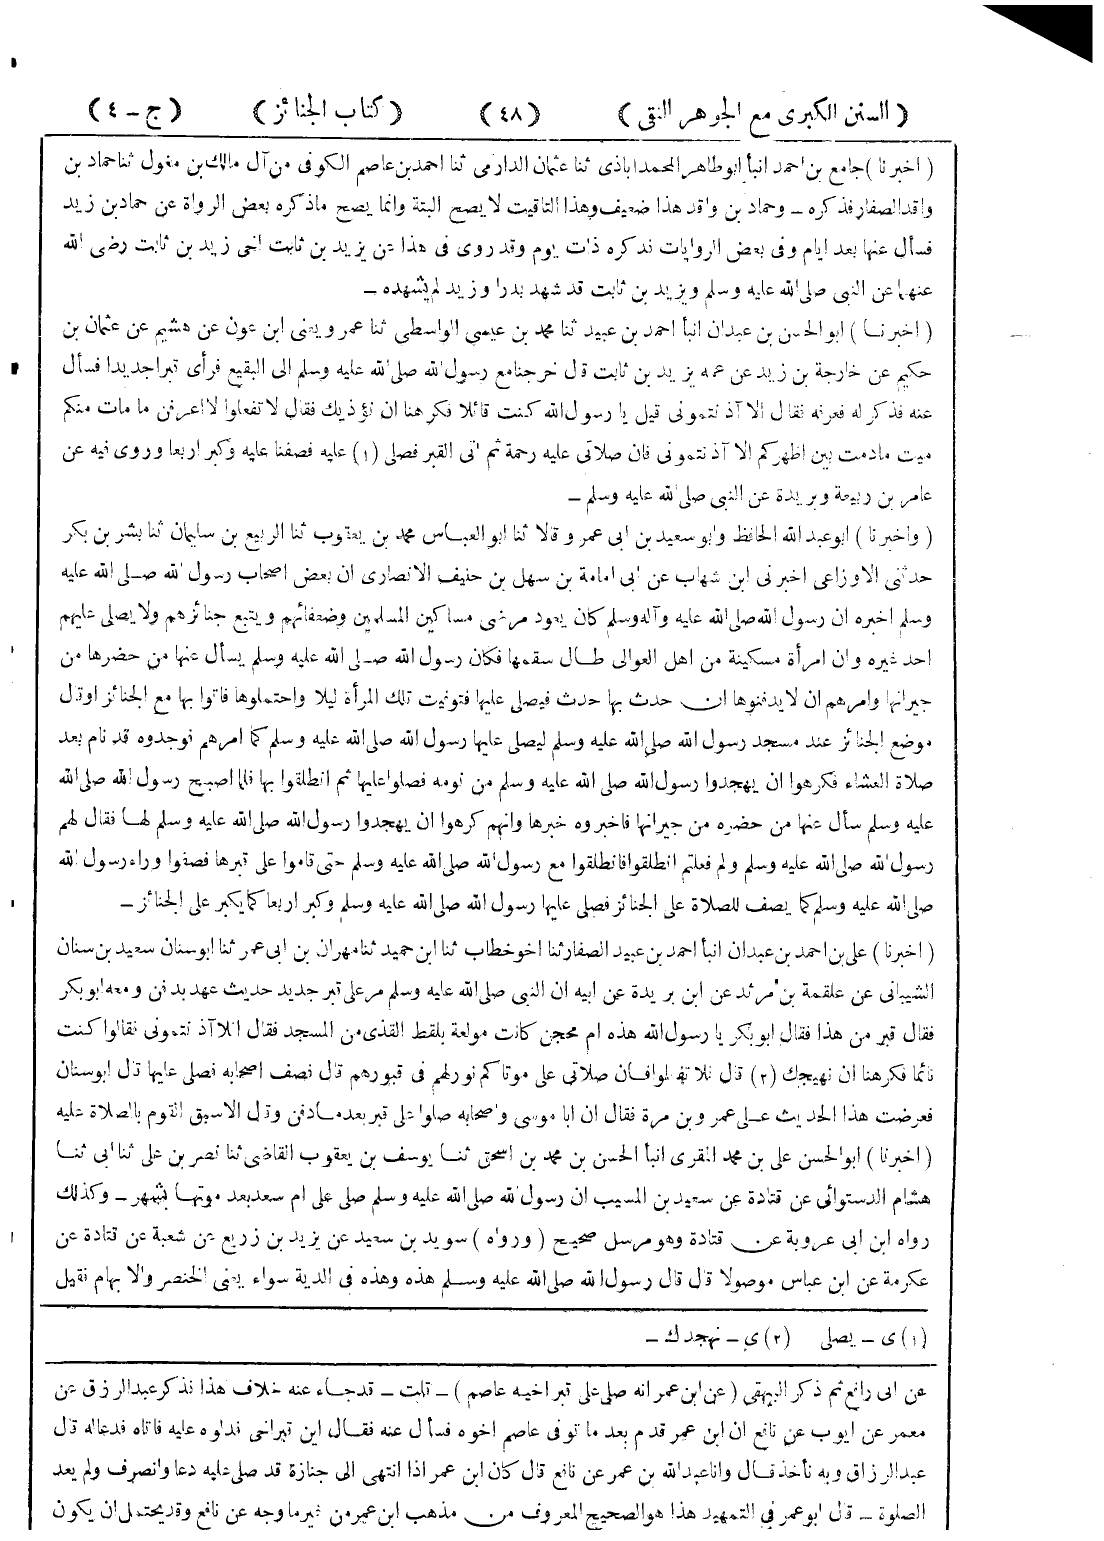 ( السنن الكبرى مع الجوهر النقى ) ( ٤٨ ) ( كتاب الجنائز ) ( ج - ٤ )
( اخبرنا ) جامع بن احمد انبأ ابو طاهر المحمداباذى ثنا عثمان الدارمى ثنا احمد بن عاصم الكوفى من آل مالك بن مغول ثنا حماد بن
واقد الصفار فذكره - وحماد بن واقد هذا ضعيف وهذا التاقيت لا يصح البتة وانما يصح ماذكره بعض الرواة عن حماد بن زيد
فسأل عنها بعد ايام وفى بعض الروايات فذكره ذات يوم وقد روى فى هذا عن يزيد بن ثابت اخى زيد بن ثابت رضى الله
عنهما عن النبى صلى الله عليه وسلم ويزيد بن ثابت قد شهد بدرا وزيد لم يشهده -
( اخبرنا ) ابو الحسن بن عبدان انبأ احمد بن عبيد ثنا محمد بن عيسى الواسطى ثنا عمرو يعنى ابن عون عن هشيم عن عثمان بن
حكيم عن خارجة بن زيد عن عمه يزيد بن ثابت قال خرجنا مع رسول الله صلى الله عليه وسلم الى البقيع فرأى قبرا جديدا فسأل
عنه فذكر له فعرفه فقال الا آذنتمونى قيل يا رسول الله كنت قائلا فكرهنا ان نؤذيك فقال لا تفعلوا لا اعرفن ما مات منكم
ميت مادمت بين اظهركم الا آذنتمونى فان صلاتى عليه رحمة ثم اتى القبر فصلى (١) عليه فصفنا عليه وكبر اربعا وروى فيه عن
عامر بن ربيعة وبريدة عن النبى صلى الله عليه وسلم -
( واخبرنا ) ابو عبد الله الحافظ وابو سعيد بن ابى عمرو قالا ثنا ابو العباس محمد بن يعقوب ثنا الربيع بن سليمان ثنا بشر بن بكر
حدثنى الاوزاعى اخبرنى ابن شهاب عن ابى امامة بن سهل بن حنيف الانصارى ان بعض اصحاب رسول الله صلى الله عليه
وسلم اخبره ان رسول الله صلى الله عليه وآله وسلم كان يعود مرضى مساكين المسلمين وضعفائهم ويتبع جنائزهم ولا يصلى عليهم
احد غيره وان امرأة مسكينة من اهل العوالى طال سقمها فكان رسول الله صلى الله عليه وسلم يسأل عنها من حضرها من
جيرانها وامرهم ان لا يدفنوها ان حدث بها حدث فيصلى عليها فتوفيت تلك المرأة ليلا واحتملوها فاتوا بها مع الجنائز او قال
موضع الجنائز عند مسجد رسول الله صلى الله عليه وسلم ليصلى عليها رسول الله صلى الله عليه وسلم كما امرهم فوجدوه قد نام بعد
صلاة العشاء فكرهوا ان يهجدوا رسول الله صلى الله عليه وسلم من نومه فصلوا عليها ثم انطلقوا بها فلما اصبح رسول الله صلى الله
عليه وسلم سأل عنها من حضره من جيرانها فاخبروه خبرها وانهم كرهوا ان يهجدوا رسول الله صلى الله عليه وسلم لها فقال لهم
رسول الله صلى الله عليه وسلم ولم فعلتم انطلقوا فانطلقوا مع رسول الله صلى الله عليه وسلم حتى قاموا على قبرها فصفوا وراء رسول الله
صلى الله عليه وسلم كما يصف للصلاة على الجنائز فصلى عليها رسول الله صلى الله عليه وسلم وكبر اربعا كما يكبر على الجنائز -
( اخبرنا ) على بن احمد بن عبدان انبأ احمد بن عبيد الصفار ثنا اخو خطاب ثنا ابن حميد ثنا مهران بن ابى عمر ثنا ابو سنان سعيد بن سنان
الشيبانى عن علقمة بن مرثد عن ابن بريدة عن ابيه ان النبى صلى الله عليه وسلم مر على قبر جديد حديث عهد بدفن ومعه ابو بكر
فقال قبر من هذا فقال ابو بكر يا رسول الله هذه ام محجن كانت مولعة بلقط القذى من المسجد فقال افلا آذنتمونى فقالوا كنت
نائما فكرهنا ان نهيجك (٢) قال فلا تفعلوا فان صلاتى على موتاكم نور لهم فى قبورهم قال فصف اصحابه فصلى عليها قال ابو سنان
فعرضت هذا الحديث على عمرو بن مرة فقال ان ابا موسى واصحابه صلوا على قبر بعد مادفن وقال الاسبق القوم بالصلاة عليه
( اخبرنا ) ابو الحسن على بن محمد المقرى انبأ الحسن بن محمد بن اسحق ثنا يوسف بن يعقوب القاضى ثنا نصر بن على ثنا ابى ثنا
هشام الدستوائى عن قتادة عن سعيد بن المسيب ان رسول الله صلى الله عليه وسلم صلى على ام سعد بعد موتها بشهر - وكذلك
رواه ابن ابى عروبة عن قتادة وهو مرسل صحيح ( ورواه ) سويد بن سعيد عن يزيد بن زريع عن شعبة عن قتادة عن
عكرمة عن ابن عباس موصولا قال قال رسول الله صلى الله عليه وسلم هذه وهذه فى الدية سواء يعنى الخنصر والابهام فقيل
(١) ى - يصلى (٢) ى - نهجدك -
عن ابى رافع ثم ذكر البيهقى ( عن ابن عمر انه صلى على قبر اخيه عاصم ) - قلت - قد جاء عنه خلاف هذا فذكر عبد الرزاق عن
معمر عن ايوب عن نافع ان ابن عمر قدم بعد ما توفى عاصم اخوه فسأل عنه فقال اين قبر اخى فدلوه عليه فاتاه فدعا له قال
عبد الرزاق وبه نأخذ قال وانا عبد الله بن عمر عن نافع قال كان ابن عمر اذا انتهى الى جنازة قد صلى عليه دعا وانصرف ولم يعد
الصلوة - قال ابو عمر فى التمهيد هذا هو الصحيح المعروف من مذهب ابن عمر من غير ما وجه عن نافع وقد يحتمل ان يكون